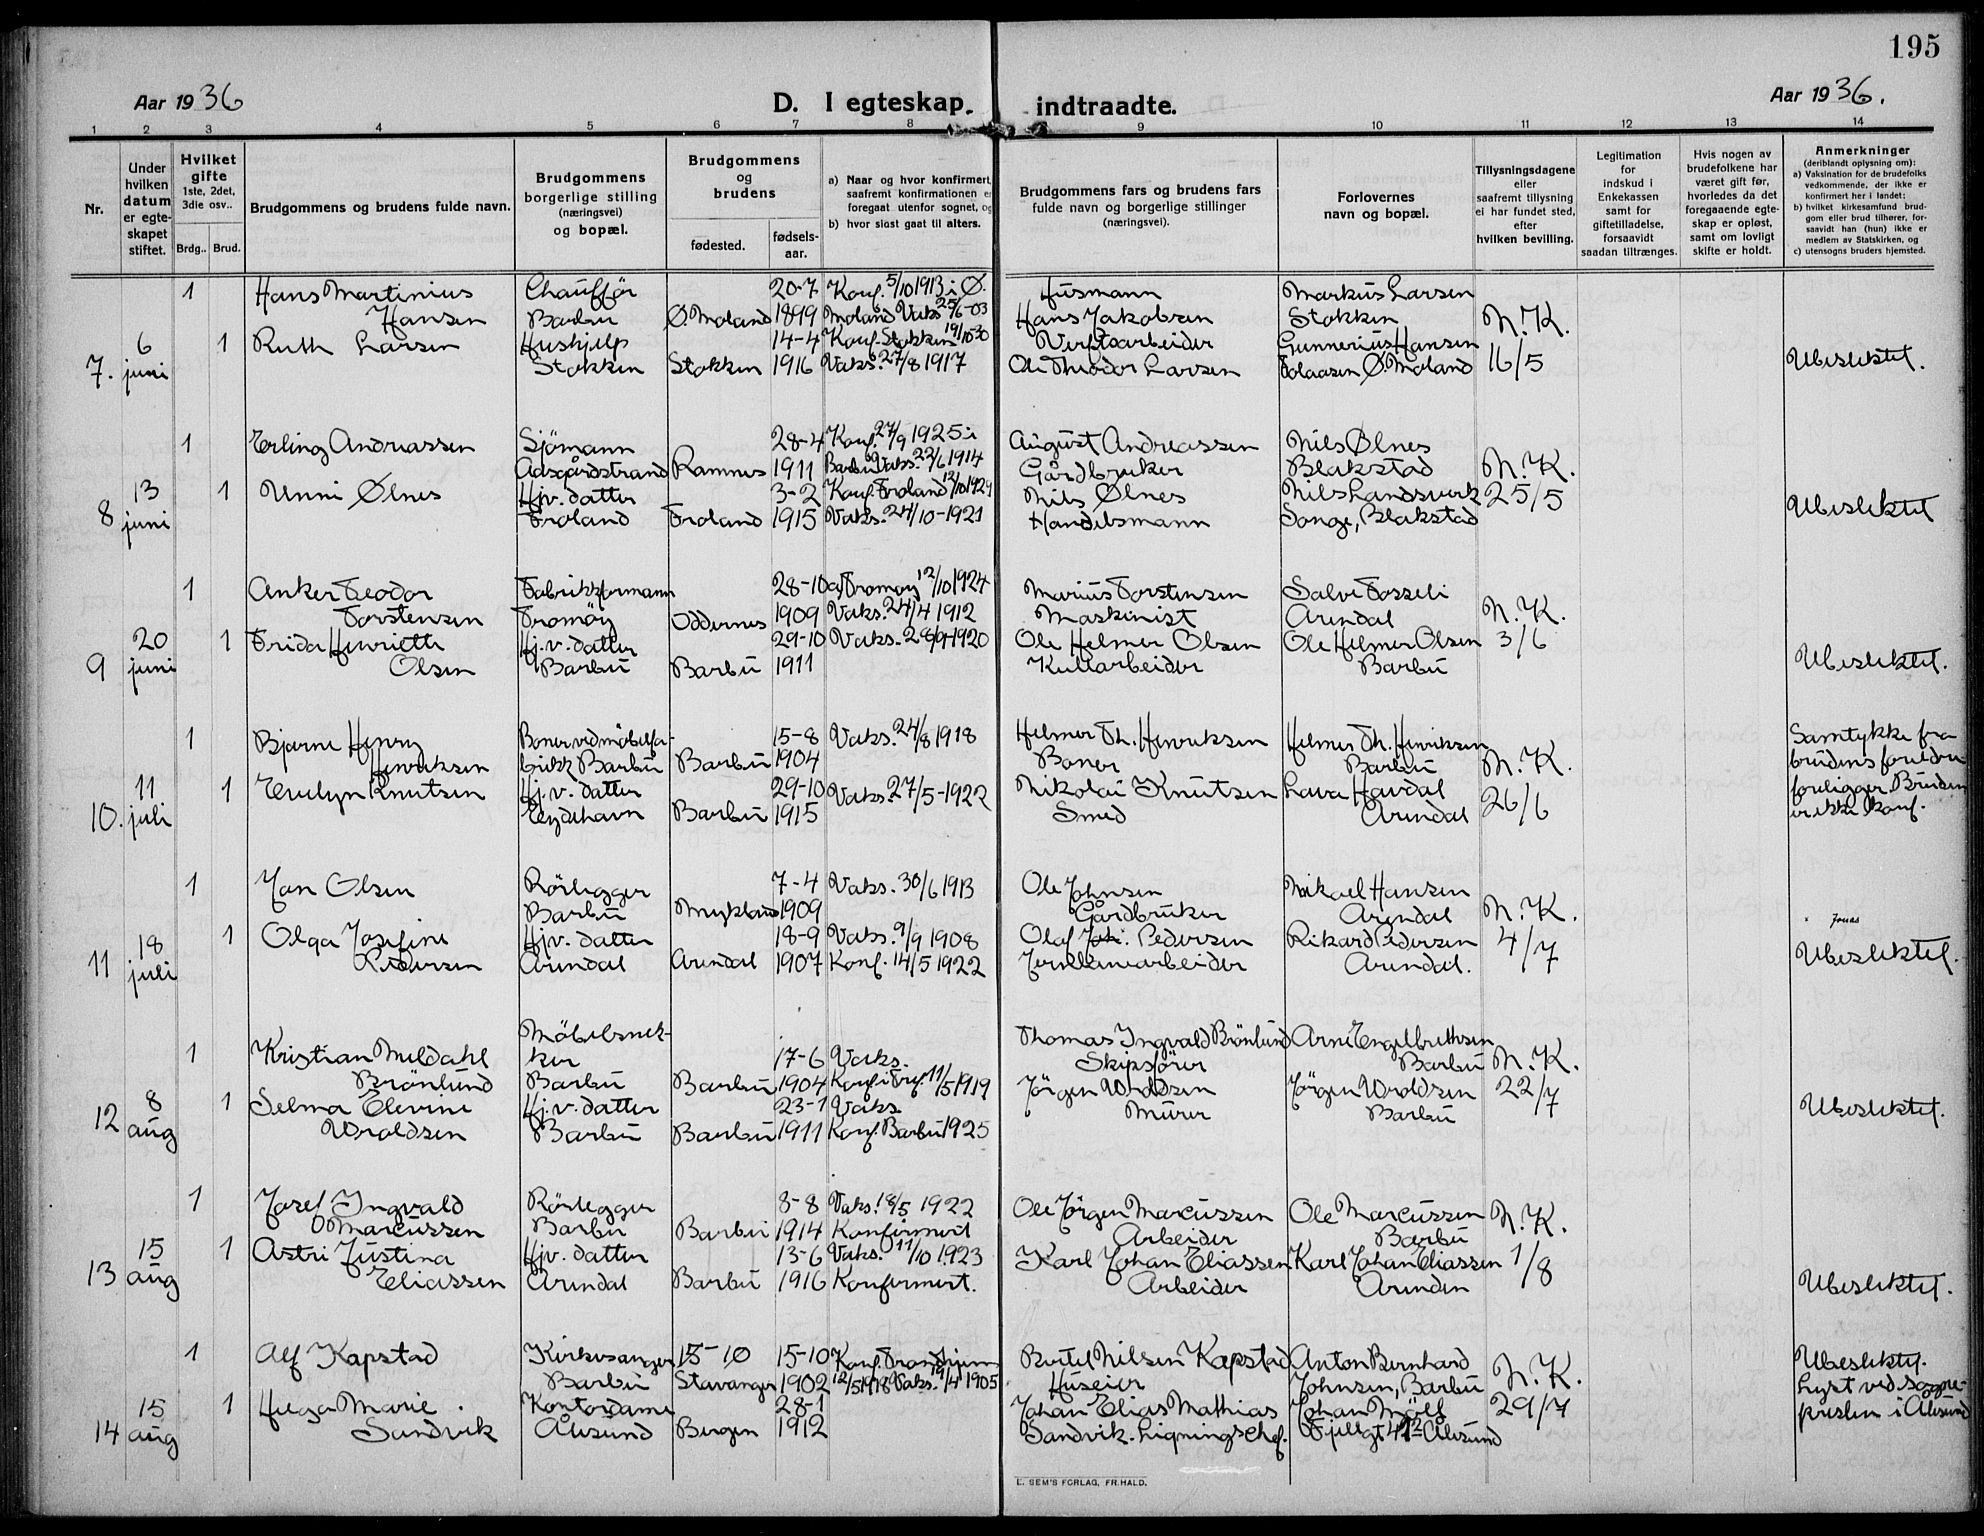 195
Aar 1936
D. I egteskap indtraadte.
Aar 1936.
1 2 3 4 5 6 7 8 9 10 11 12 13 14
Nr.
Under hvilken datum er egteskapet stiftet.
Hvilket gifte 1ste, 2det, 3die osv..
Brdg.. Brud.
Brudgommens og brudens fulde navn.
Brudgommens borgerlige stilling (næringsvei) og bopæl.
Brudgommens og brudens
fødested. fødselsaar.
a) Naar og hvor konfirmert, saafremt konfirmationen er foregaat utenfor sognet, og
b) hvor sidst gaat til alters.
Brudgommens fars og brudens fars fulde navn og borgerlige stillinger (næringsvei).
Forlovernes navn og bopæl.
Tillysningsdagene eller saafremt tillysning ei har fundet sted, efter hvilken bevilling.
Legitimation for indskud i Enkekassen samt for giftetilladelse, forsaavidt saadan tiltrænges.
Hvis nogen av brudefolkene har været gift før, hvorledes da det foregaaende egteskap er opløst, samt om lovligt skifte er holdt.
Anmerkninger (deriblandt oplysning om):
a) Vaksination for de brudefolks vedkommende, der ikke er konfirmert her i landet;
b) hvilket kirkesamfund brudgom eller brud tilhører, forsaavidt han (hun) ikke er medlem av Statskirken, og
c) utensogns bruders hjemsted.
1 Hans Martinius Chauffør 20-7 Konf. 5/10 1913 i Ø. Husmann Markus Larsen
Hansen Barbu Ø. Moland 1899 Moland Vaks 25/6-03 Hans Jakobsen Stokken N.K.
6 1 Ruth Larsen Hushjelp 14-4 Konf. Stokken 19/10-30 Verftsarbeider Gunnerius Hansen
7. juni Stokken Stokken 1916 Vaks. 27/8 1917 Ole Theodor Larsen Ø. Moland 16/5 Ubeslektet.
1 Erling Andreassen Sjömann 28-4 Konf. 27/9 1925 i August Andreassen Nils Ølnes
Aasgårdstrand Ramnes 1911 Barbu Vaks. 22/6 1914 Gårdbruker Blakstad N.K.
13 1 Unni Ølnes Hjv. datter 3-2 Konf. Froland 12/10 1929 Nils Ølnes Nils Landsverk 25/5
8 juni Froland Froland 1915 Vaks. 24/10-1921 Handelsmann Songe, Blakstad Ubeslektet
1 Anker Teodor Fabrikkformann 28-10 Tromøy 12/10 1924 Marius Torstensen Salve Fosseli
Torstensen Tromöy Oddernes 1909 Vaks. 24/4 1912 Maskinist Arendal N.K.
20 1 Frida Henriette Hj. v. datter 29-10 Vaks. 28/9-1920 Ole Helmer Olsen Ole Helmer Olsen 3/6
9 juni Olsen Barbu Barbu 1911 Kullarbeider Barbu Ubeslektet.
1 Bjarne Henry Boner ved möbelfa- 15-8 Vaks. 24/8 1918 Helmer Th. Henriksen Helmer Th. Henriksen Samtykke fra
Henriksen brikk Barbu Barbu 1904 Boner Barbu N.K. brudens foreldre
11 1 Evelyn Knutsen Hj. v. datter 29-10 Vaks. 27/5-1922 Nikolai Knutsen Lava Havdal foreligger. Bruden
10. juli Eydehavn Barbu 1915 Smed Arendal 26/6 er ikke konf.
1 Jon Olsen Rörlegger 7-4 Vaks. 30/6 1913 Ole Johnsen Mikael Hansen
Barbu Mykland 1909 Gårdbruker Arendal N.K.
18 1 Olga Josefine Hjv. datter 18-9 Vaks. 9/9 1908 Olaf Joh. Pedersen Rikard Pedersen 4/7 Jonas
11 juli Pedersen Arendal Arendal 1907 Konf. 14/5 1922 Jernbanearbeider Arendal. Ubeslektet.
Möbelsnek- Thomas Ingvald Brönlund Arne Engelbrethsen
1 Kristian Meldahl ker 17-6 Vaks. Skipsförer Barbu N.K.
Brönlund Barbu Barbu 1904 Konf. i Tref. 11/5 1919 Jörgen Uroldsen Jörgen Uroldsen 22/7
8 1 Selma Elevine Hj. v. datter 23-1 Vaks. Murer Barbu
12 aug Uroldsen Barbu Barbu 1911 Konf. Barbu 1925 Ubeslektet.
1 Josef Ingvald Rörlegger 8-8 Vaks. 18/5 1922 Ole Jörgen Marcussen Ole Marcussen N.K.
Marcussen Barbu Barbu 1914 Konfirmert Arbeider Barbu
15 1 Astri Justina Hjv. datter 13-6 Vaks. 11/10 1923 Karl Johan Eliassen Karl Johan Eliassen 1/8
13 aug Eliassen Arendal Barbu 1916 Konfirmert. Arbeider Arendal Ubeslektet.
1 Alf Kapstad Kirkesanger 15-10 15-10 Konf. Trondhjem Bertel Nilsen Kapstad Anton Bernhard Ubeslektet.
Barbu Stavanger 1902 12/5 1918 Vaks. 19/4 1905 Huseier Johnsen, Barbu N.K. Lyst ved sogne-
15 1 Helga Marie Kontordame 28-1 Johan Elias Mathias Johan 29/7 presten i Ålesund
14 aug Sandvik Ålesund Bergen 1912 Sandvik. Ligningschef. Fjellgt Ålesund
E. SEM'S FORLAG, FR.HALD.